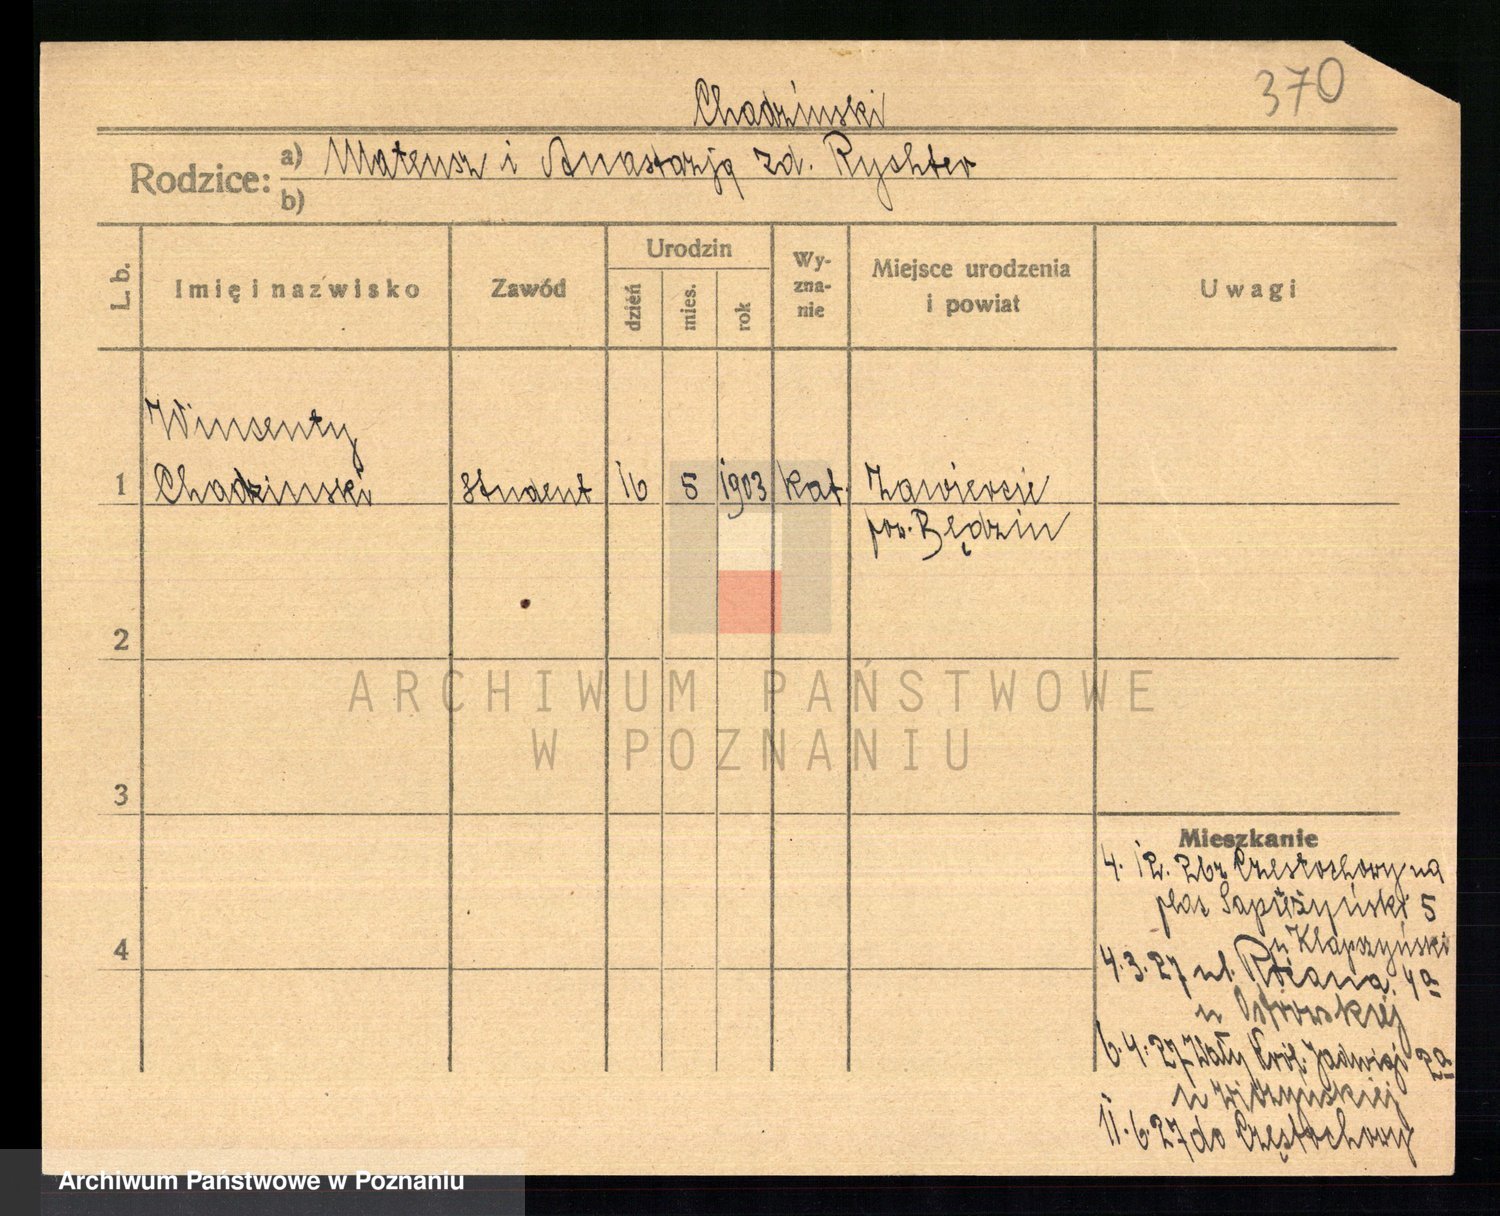 370
Chadzinski
Rodzice: a) Mateusz i Anastazją zd. Rychter
b)
L. b.
Imię i nazwisko
Zawód
Urodzin
dzień
mies.
rok
Wy-
zna-
nie
Miejsce urodzenia
i powiat
Uwagi
Wincenty
1 Chadzinski student 16 5 1903 kat. Zawiercie
pow. Będzin
2
3
4
ARCHIWUM PAŃSTWOWE
W POZNANIU
Mieszkanie
4. 12. 26 z Częstochowy na
plac Sapieżyński 5
u
4. 3. 27 ul. Różana 4a
u Ostrowskiej
6. 4. 27 Wały Król. Jadwigi 2a
u
11. 6. 27 do Częstochowy
Archiwum Państwowe w Poznaniu